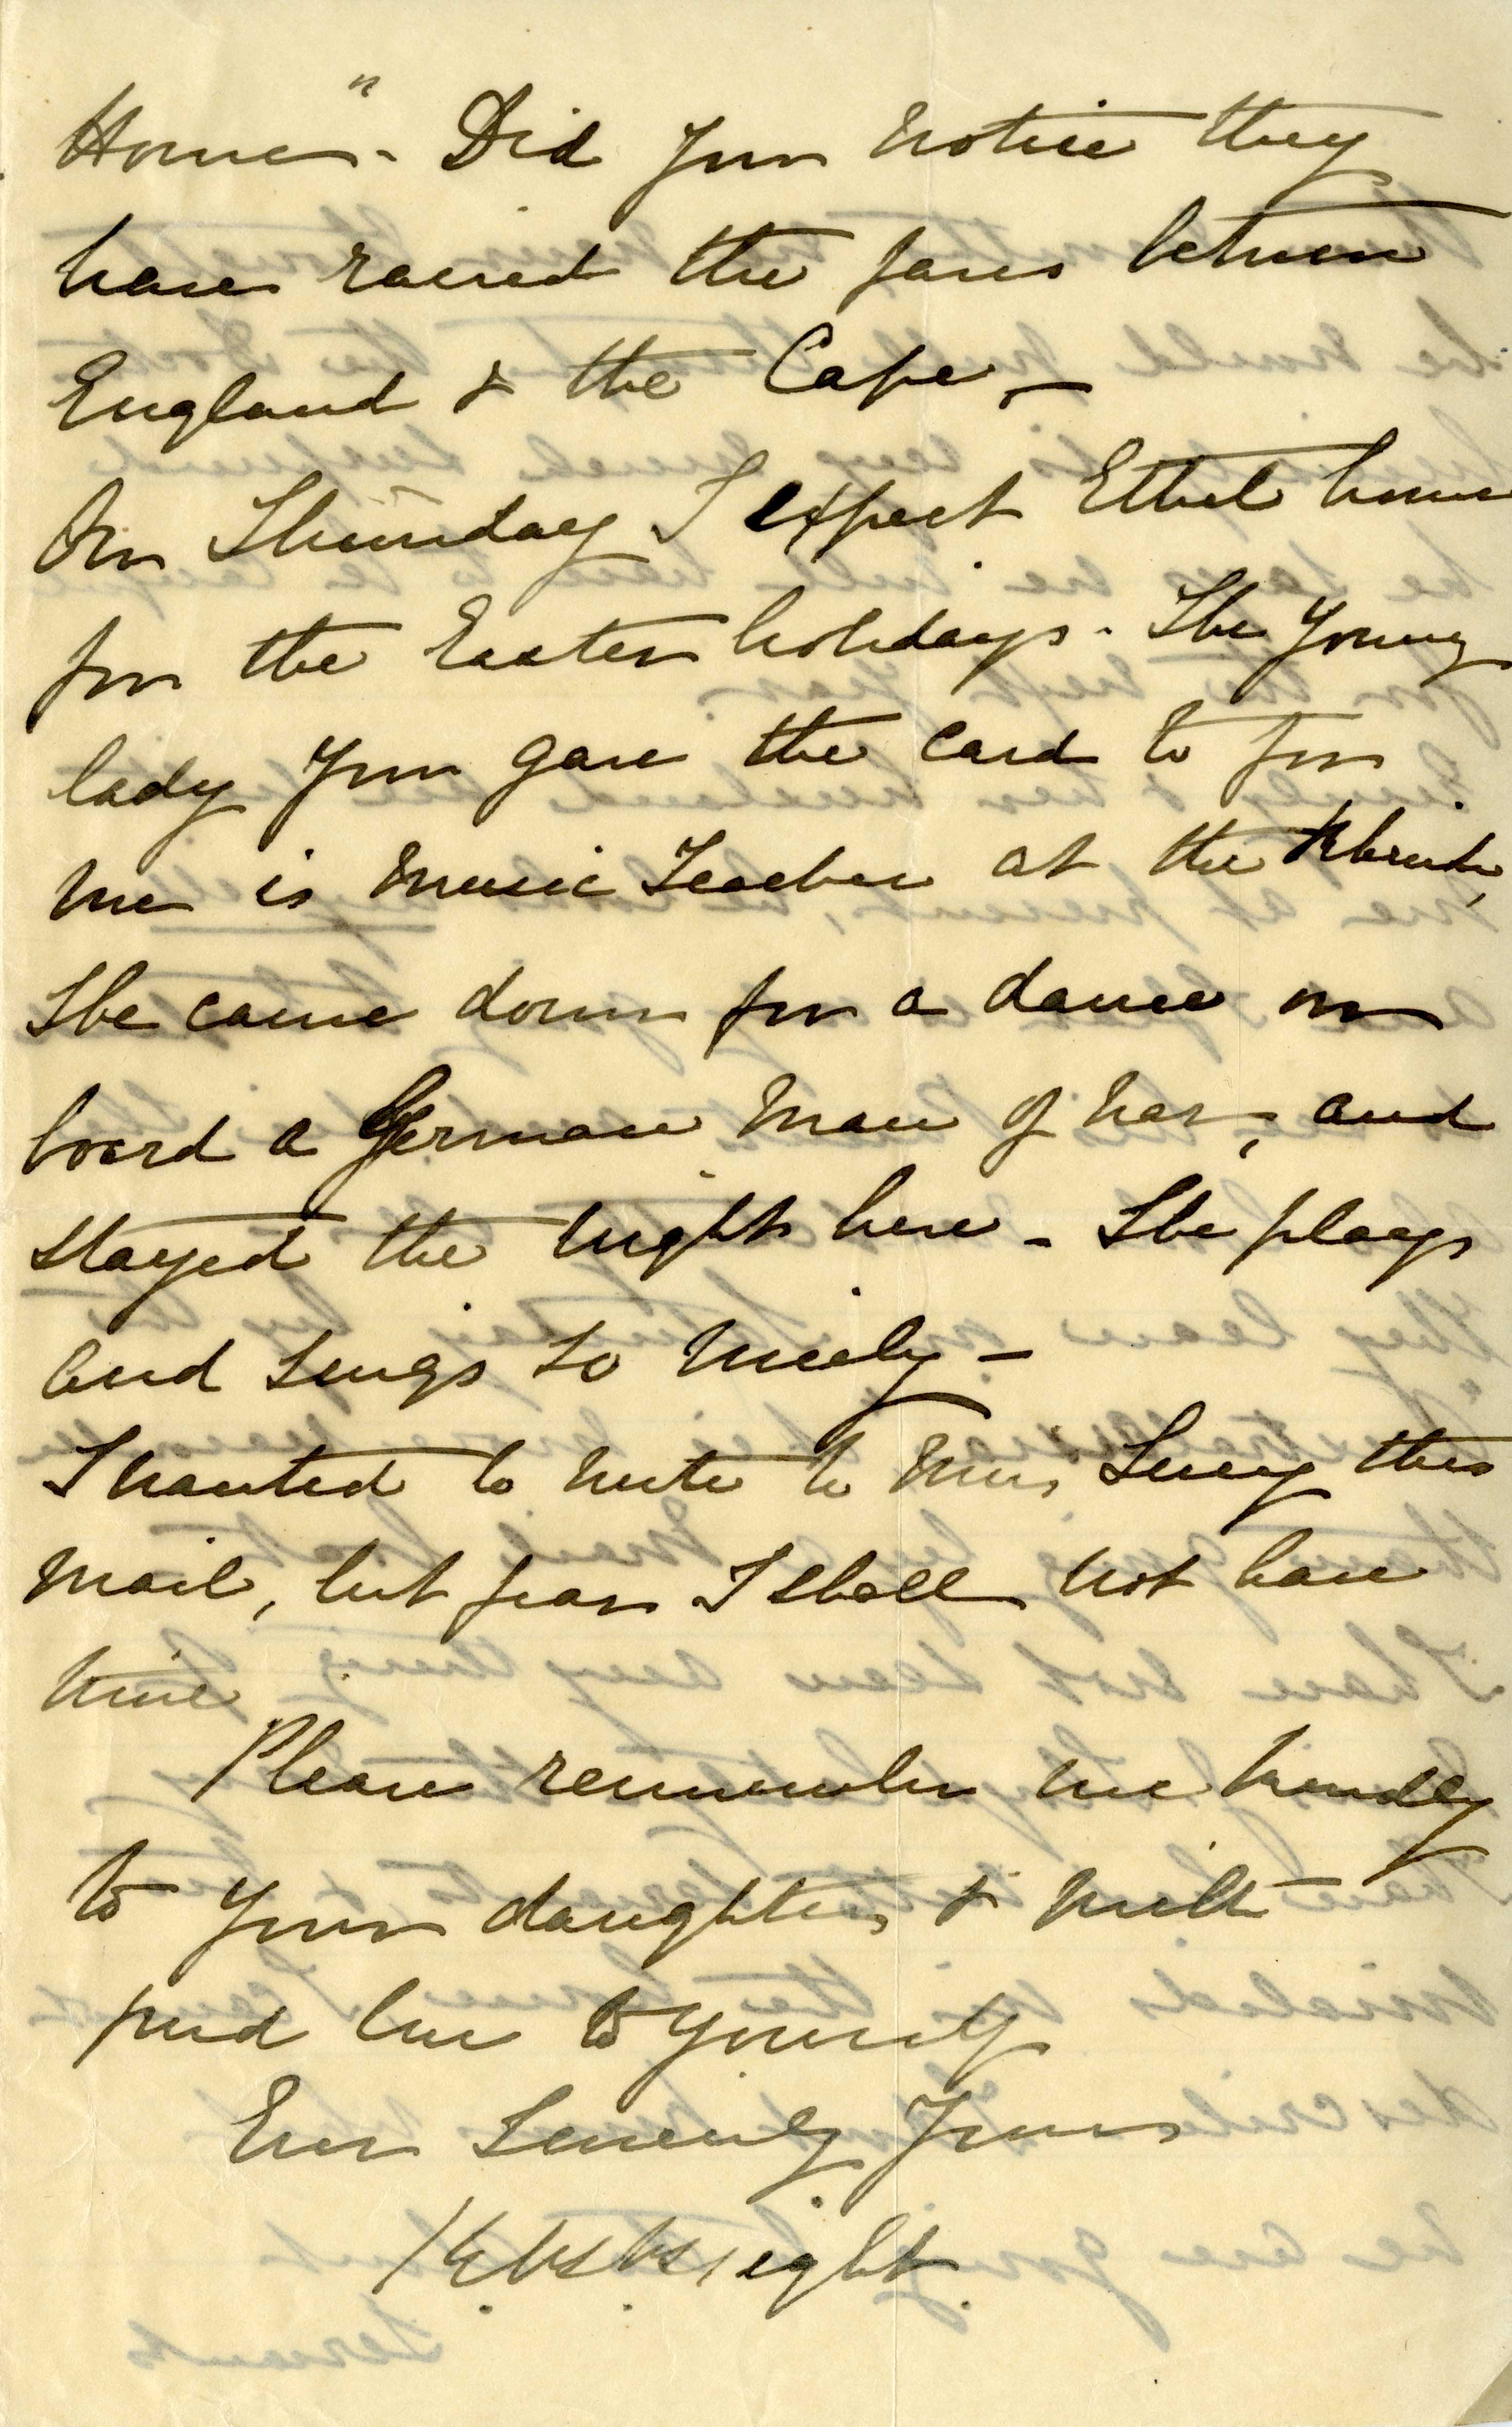 Home". Did you notice they
have raised the fares between
England & the Cape. —
On Thursday I expect Ethel home
for the Easter holidays. The young
lady you gave the card to for
me is Music Teacher at the
She came down for a dance on
board a German Man of War, and
stayed the night here - She plays
and sings so nicely -
I wanted to write to Miss Lucy this
mail, but fear I shall not have
time
Please remember me kindly
to your daughters & with
kind love to yourself
Ever Sincerely Yours
Wright